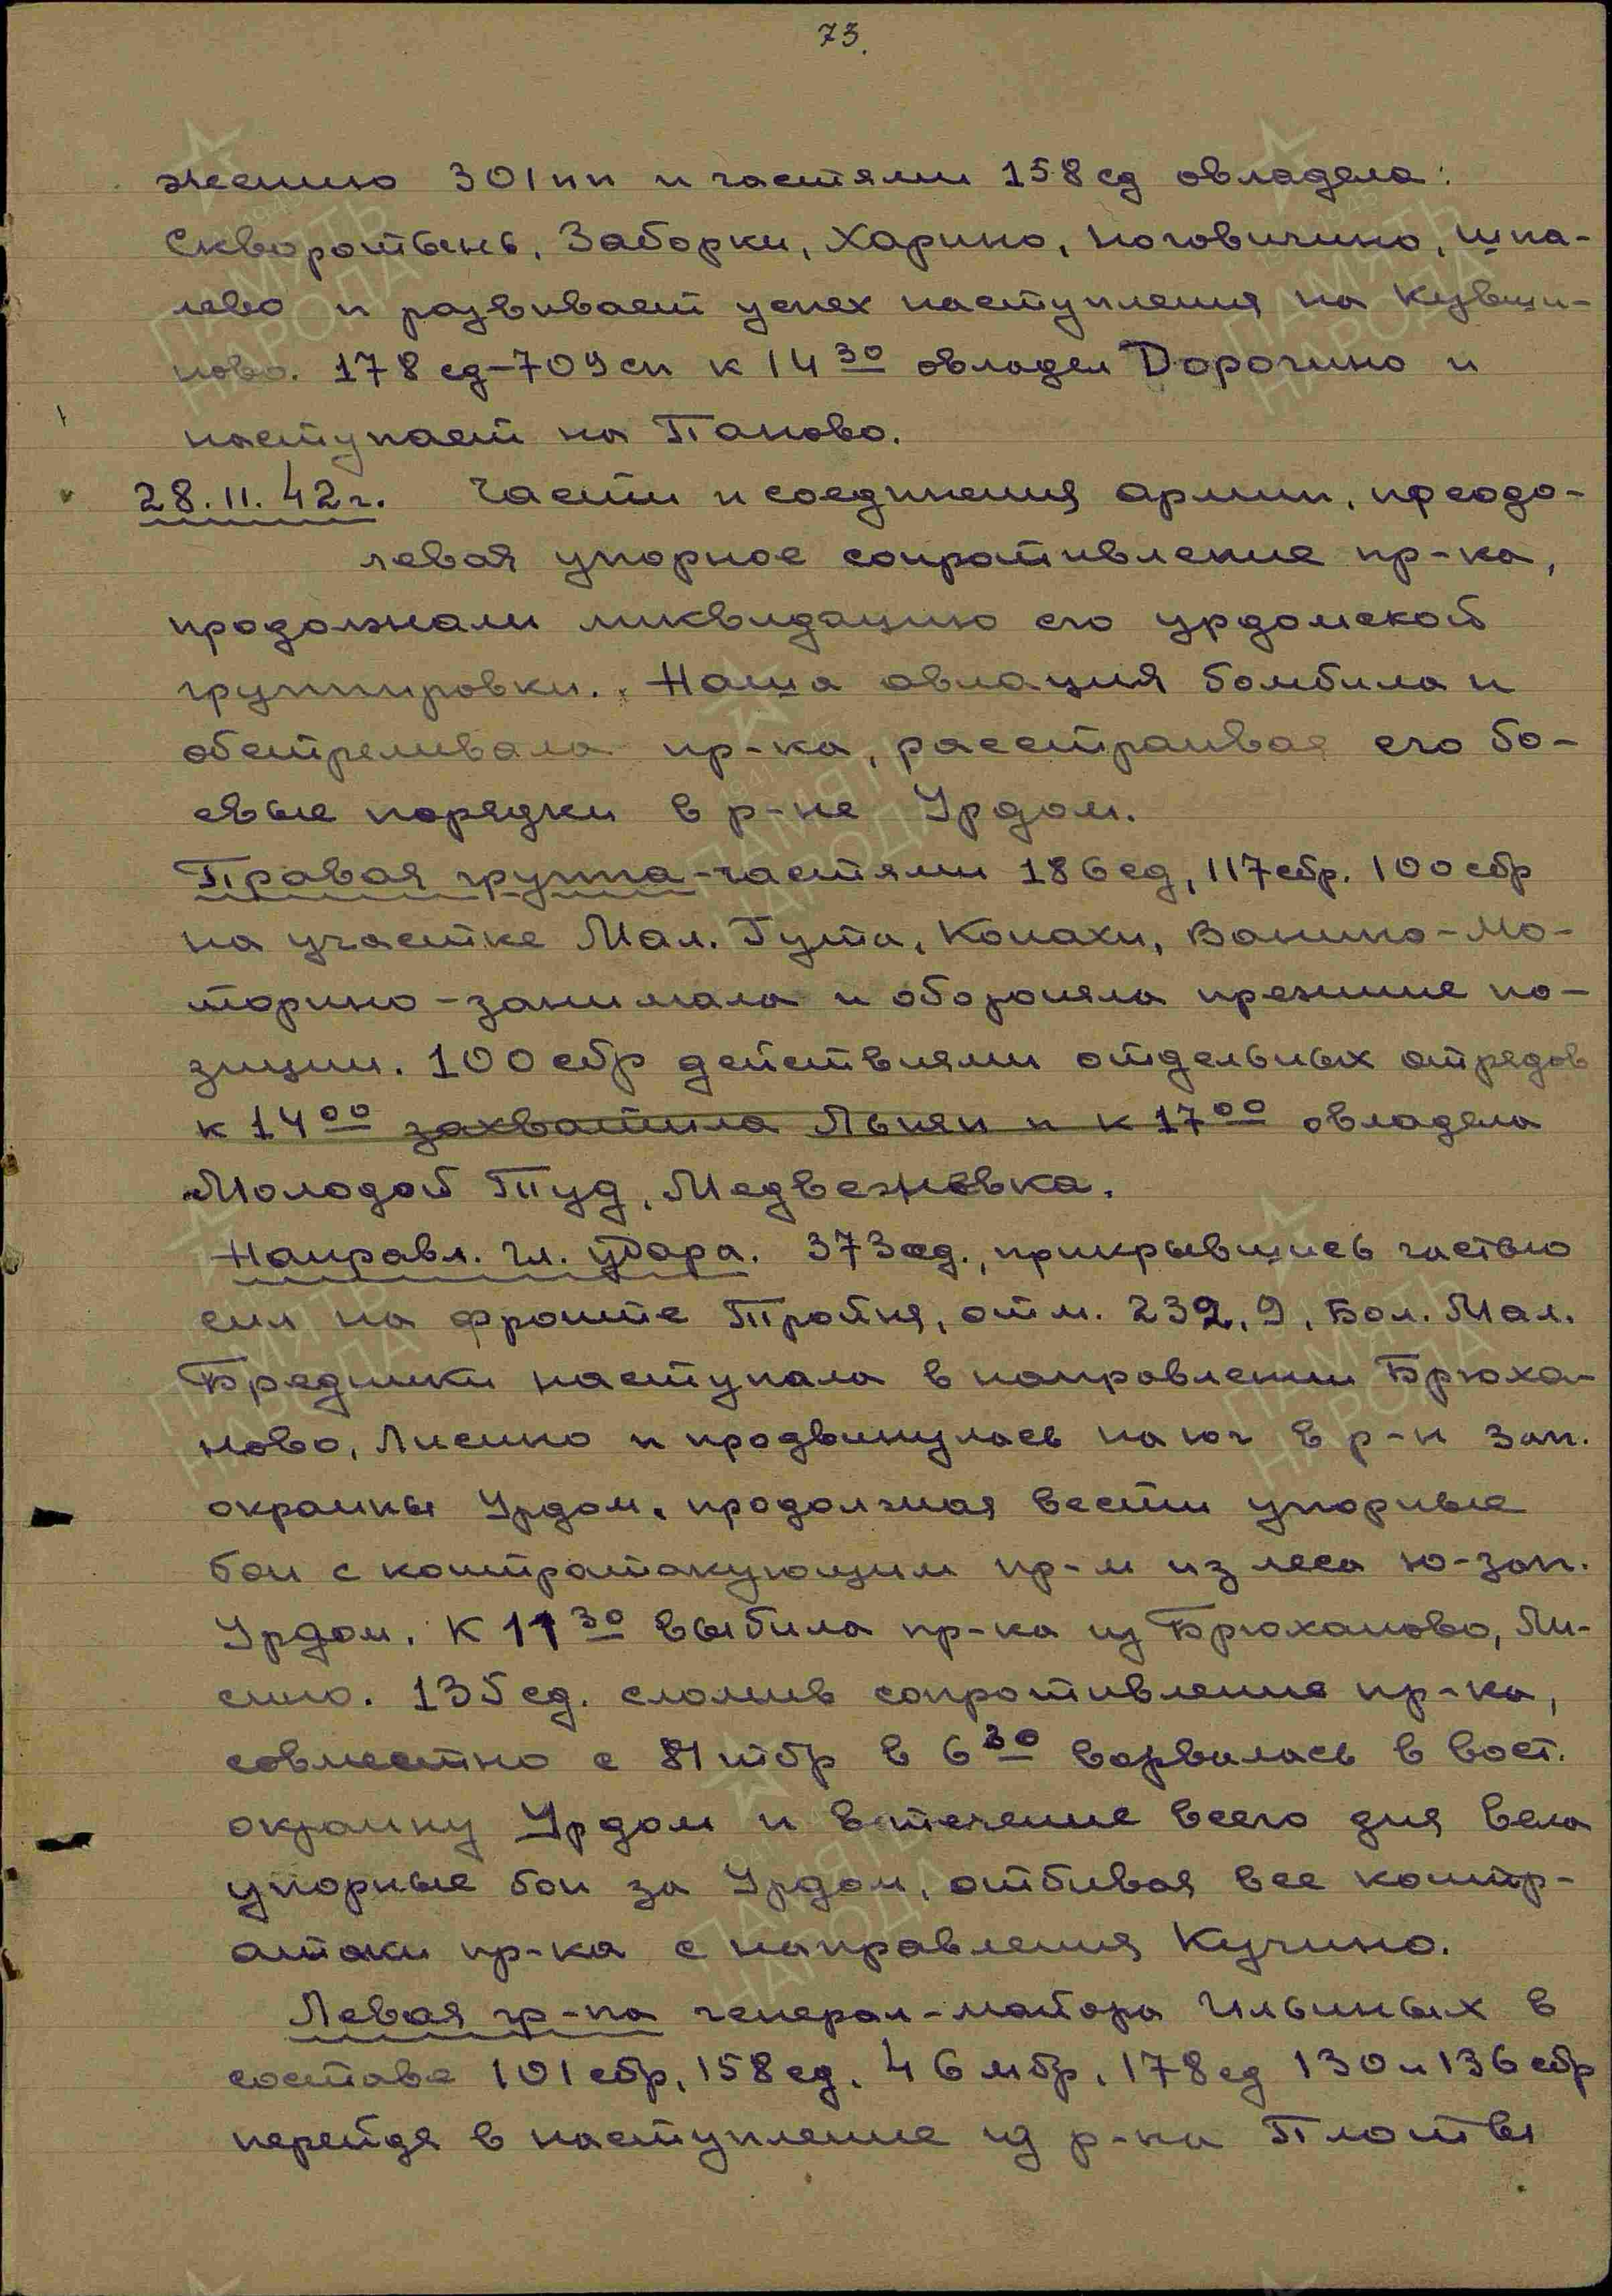 73.
жению 301 пп и частями 158 сд овладела:
Сквороты​нь, Заборки, Харино, Ноговичино, Шпа-
лево и развивает успех наступления на Кувши-
ново. 178 сд-709 сп к 14 30 овладел Дорогино и
наступает на Паново.
28.11.42г. Части и соединения армии, преодо-
левая упорное сопротивление пр-ка,
продолжали ликвидацию его урдомской
группировки. Наша авиация бомбила и
обстреливала пр-ка, расстраивая его бо-
евые порядки в р-не Урдом.
Правая группа-частями 186 сд, 117 сбр. 100 сбр
на участке Мал. Гута, Копахи, Ванино-Мо-
торино-занимала и обороняла прежние по-
зиции. 100 сбр действиями отдельных отрядов
к 14 00 захватила и к 17 00 овладела
Молодой Туд, Медвежевка.
Направл. гл. удара. 373 сд., прикрывшись частью
сил на фронте Тройня, отм. 232,9, Бол. Мал.
Бредники наступала в направлении Брюха-
ново, Лисино и продвинулась на юг в р-н зап.
окраины Урдом, продолжая вести упорные
бои с контратакующим пр-м из леса ю-зап.
Урдом. К 11 30 выбила пр-ка из Брюханово, Ли-
сино. 135 сд. сломив сопротивление пр-ка,
совместно с 81 тбр в 6 30 ворвалась в вост.
окраину Урдом и втечение всего дня вела
упорные бои за Урдом, отбивая все контр-
атаки пр-ка с направления Кучино.
Левая гр-па генерал-майора Ильиных в
составе 101 сбр, 158 сд, 46 мбр, 178 сд 130 и 136 сбр
перейдя в наступление из р-на Плотвы
ПАМЯТЬ
НАРОДА